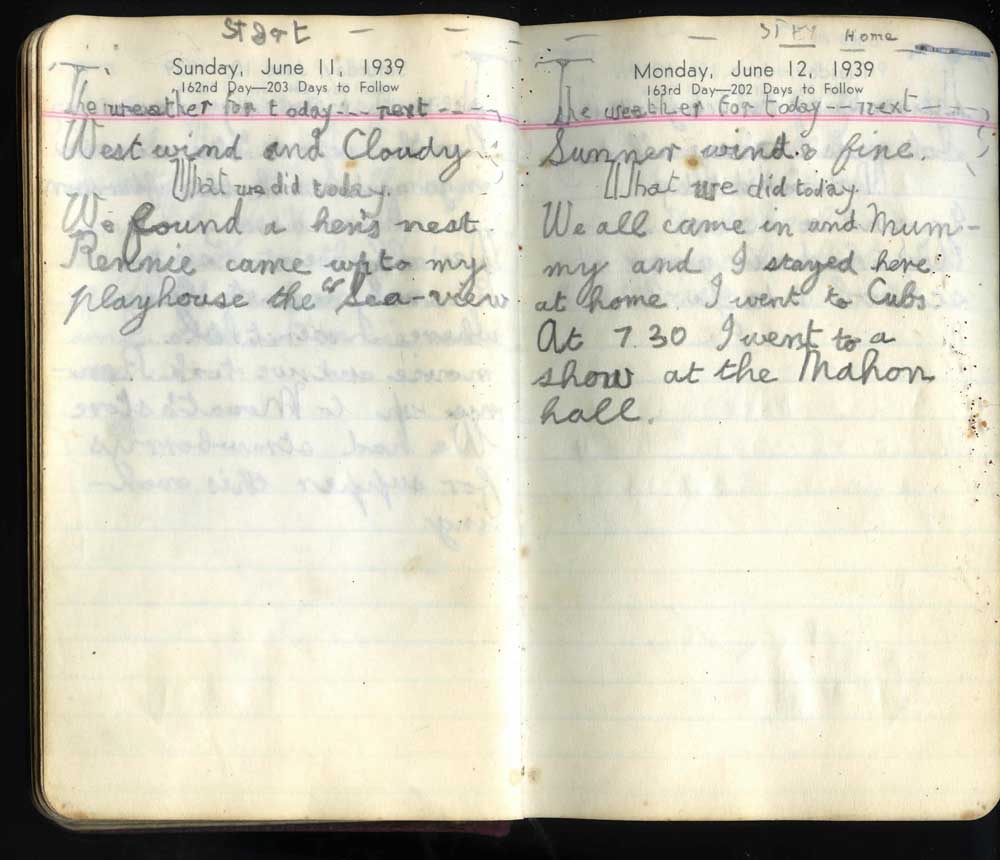 Start - - -
Sunday, June 11, 1939
162nd Day—203 Days to Follow
The weather for today --- next - - -
West wind and Cloudy
What we did today.
We found a hen's nest.
Rennie came up to my
playhouse the "Sea-view
- - - STEY Home
Monday, June 12, 1939
163rd Day—202 Days to Follow
The weather for today -- next - - -
Sumner wind & fine.
What we did today.
We all came in and Mum-
my and I stayed here
at home. I went to Cubs.
At 7.30 I went to a
show at the Mahon
hall.